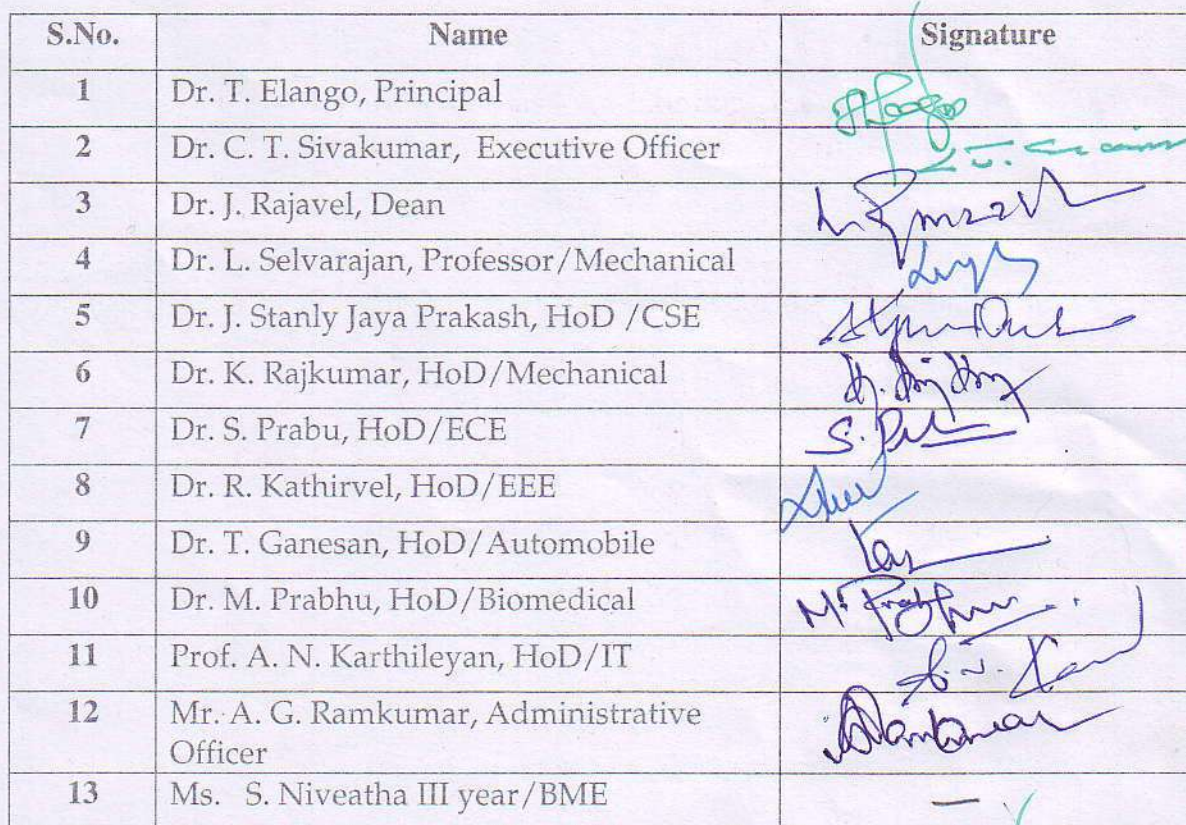 S.No. Name Signature
1 Dr. T. Elango, Principal
2 Dr. C. T. Sivakumar, Executive Officer
3 Dr. J. Rajavel, Dean
4 Dr. L. Selvarajan, Professor/Mechanical
5 Dr. J. Stanly Jaya Prakash, HoD /CSE
6 Dr. K. Rajkumar, HoD/Mechanical
7 Dr. S. Prabu, HoD/ECE
8 Dr. R. Kathirvel, HoD/EEE
9 Dr. T. Ganesan, HoD/Automobile
10 Dr. M. Prabhu, HoD/Biomedical M. Prabhu
11 Prof. A. N. Karthileyan, HoD/IT
12 Mr. A. G. Ramkumar, Administrative
Officer
13 Ms. S. Niveatha III year/BME –